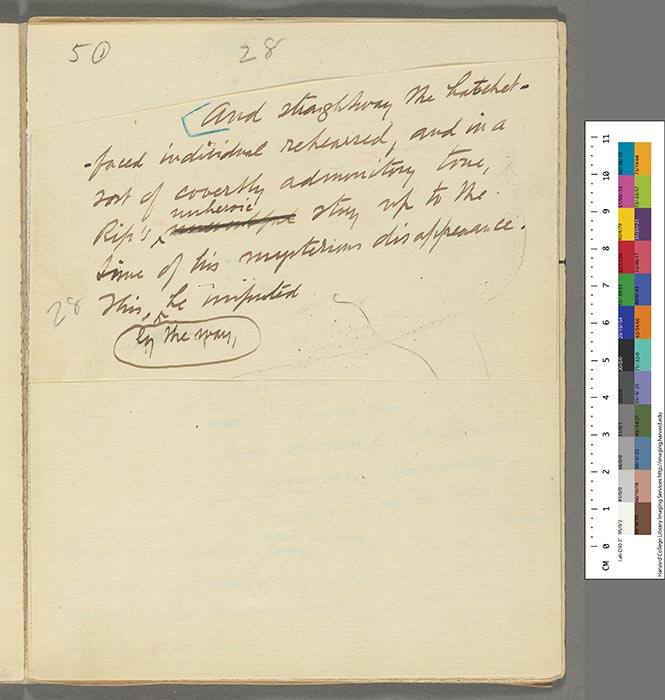 50 1 28
And straightway the hatchet-
-faced individual rehearsed, and in a
sort of covertly admonitory tone,
unheroic
Rip's story up to the
time of his mysterious disappearance.
28 This, he imputed
by the way,
CM 0 1 2 3 4 5 6 7 8 9 10 11
Harvard College Library Imaging Services http://imaging.harvard.edu